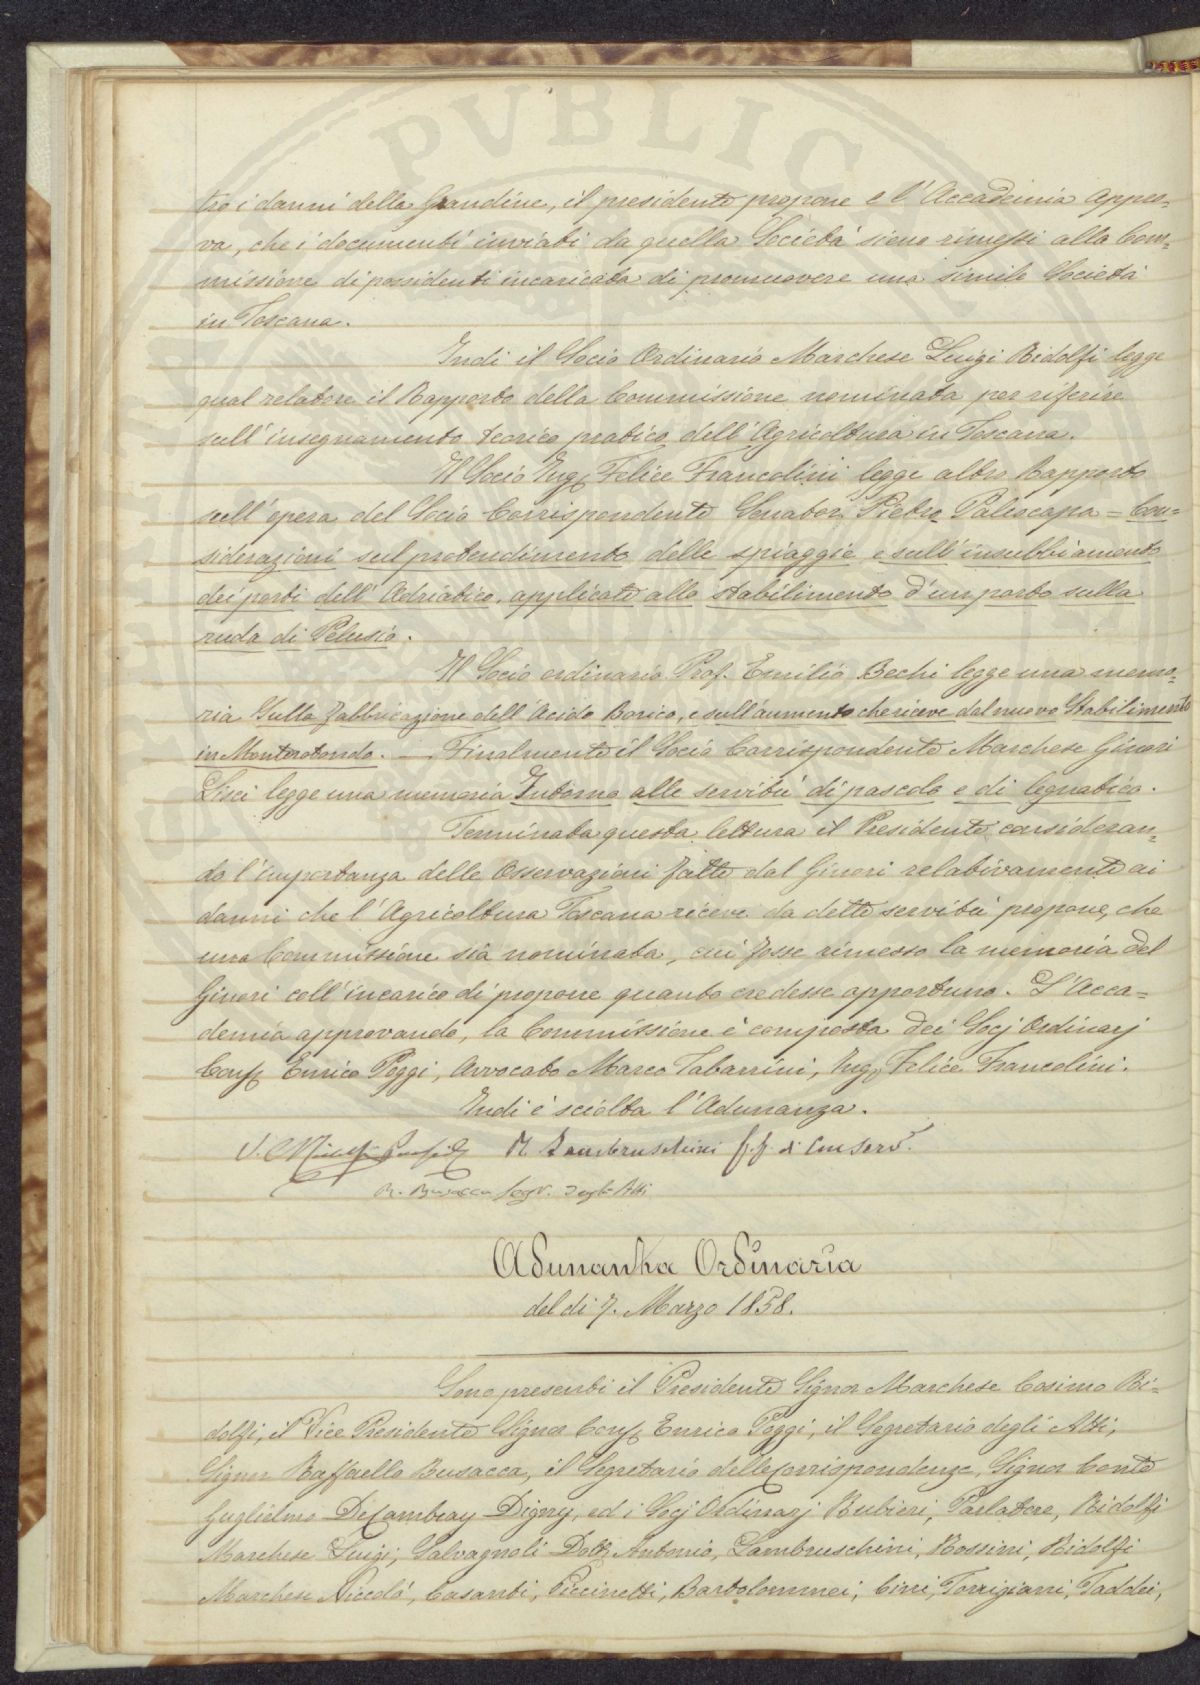 PVBLIC
tro i danni della Grandine, il presidente propone e l'Accademia appro-
va, che i documenti inviati da quella Società sieno rimessi alla Com-
missione di possidenti incaricata di promuovere una simile Società
in Toscana.
Indi il Socio Ordinario Marchese Luigi Ridolfi legge
qual relatore il Rapporto della Commissione nominata per riferire
sull'insegnamento teorico pratico dell'Agricoltura in Toscana.
Il Socio Ing. Felice Francolini legge altro Rapporto
sull'opera del Socio Corrispondente Senator Pietro Paleocapa = Con=
siderazioni sul protendimento delle spiaggie e sull'insabbiamento
dei porti dell'Adriatico, applicate allo stabilimento d'un porto sulla
rada di Pelusio.
Il Socio ordinario Prof. Emilio Bechi legge una memo-
ria Sulla fabbricazione dell'Acido Borico, e sull'aumento che riceve dal nuovo Stabilimento
in Monterotondo. — Finalmente il Socio Corrispondente Marchese Ginori
Lisci legge una memoria Intorno alle servitù di pascolo e di legnatico.
Terminata questa lettura il Presidente consideran-
do l'importanza delle Osservazioni fatte dal Ginori relativamente ai
danni che l'Agricoltura Toscana riceve da dette servitù propone, che
una Commissione sia nominata, cui fosse rimesso la memoria del
Ginori coll'incarico di propone quanto credesse opportuno. L'Acca-
demia approvando, la Commissione è composta dei Socj Ordinarj
Cons. Enrico Poggi, Avvocato Marco Tabarrini, Ing. Felice Francolini.
Indi è sciolta l'Adunanza.
V. C. Ridolfi R. Lambruschini ff. di Conserv.
R. Busacca Segr. degli Atti
Adunanza Ordinaria
del di 7. Marzo 1858.
Sono presenti il Presidente Signor Marchese Cosimo Ri-
dolfi, il Vice Presidente Signor Cons. Enrico Poggi, il Segretario degli Atti,
Signor Raffaello Busacca, il Segretario delle Corrispondenze, Signor Conte
Guglielmo De Cambray Digny, ed i Socj Ordinarj Rubieri, Parlatore, Ridolfi
Marchese Luigi, Salvagnoli Dott. Antonio, Lambruschini, Rossini, Ridolfi
Marchese Niccolò, Casanti, Piccinetti, Bartolommei, Cini, Torrigiani, Taddei,